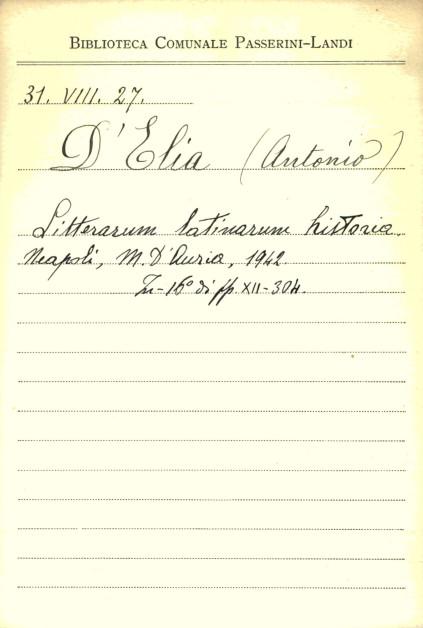 BIBLIOTECA COMUNALE PASSERINI-LANDI
31. VIII. 27.
D'Elia (Antonio)
Litterarum latinarum historia.
Neapoli, M. D'Auria, 1942.
In-16° di pp. XII-304.